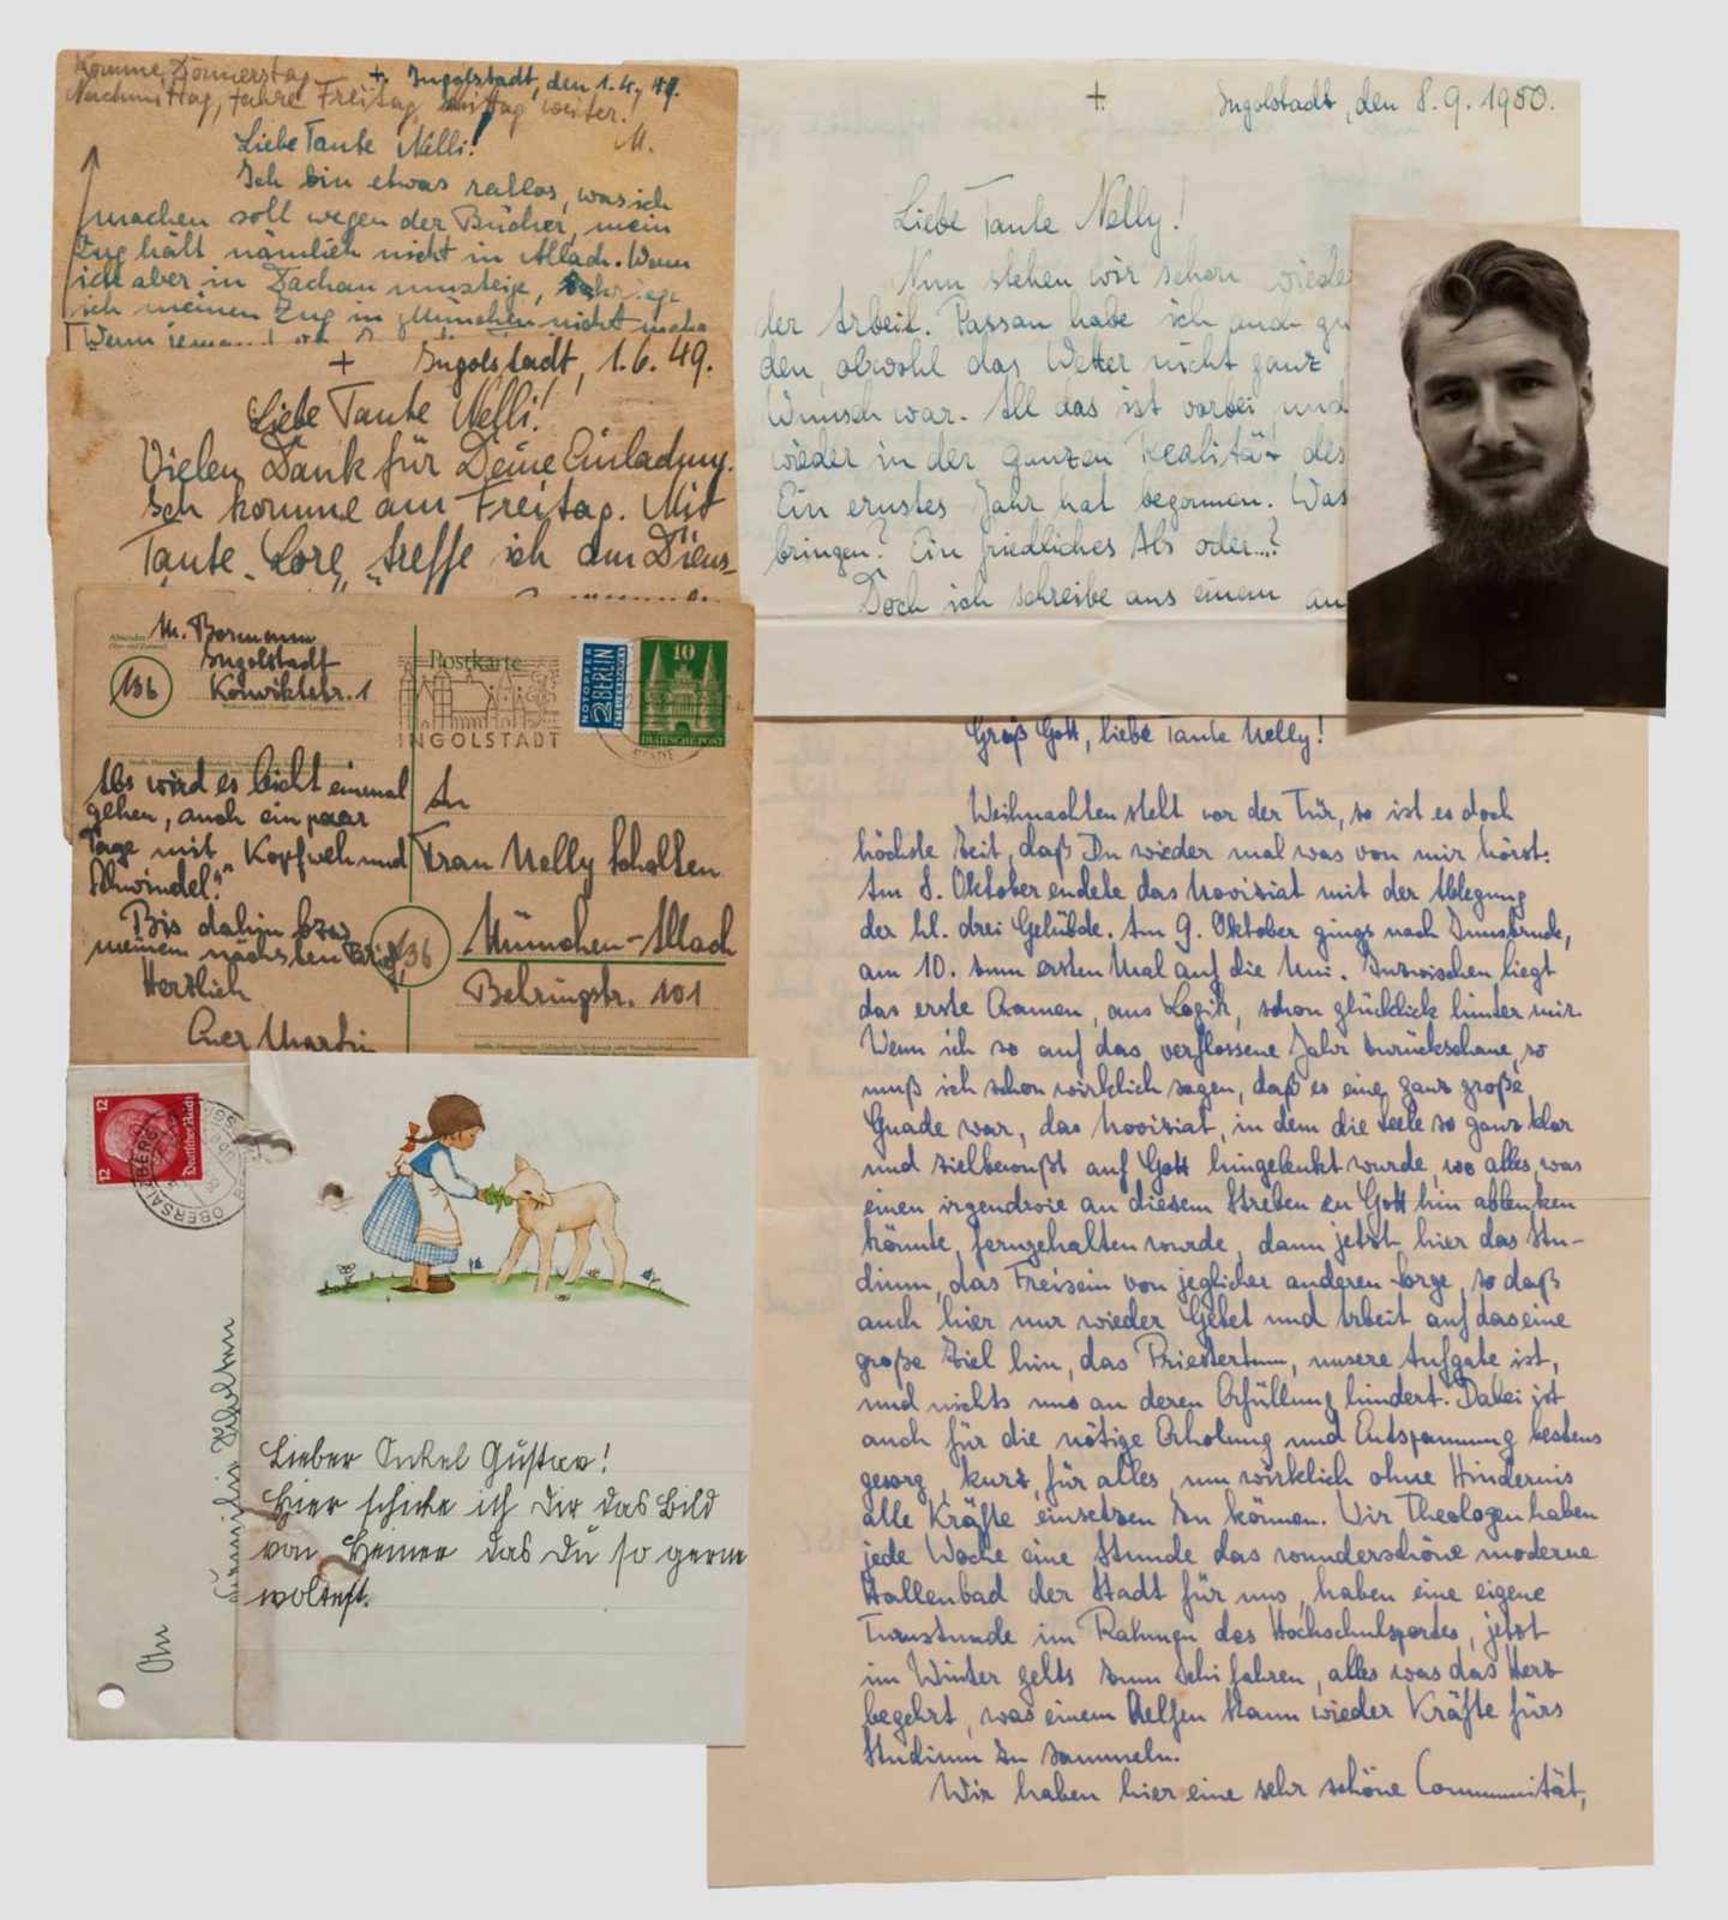 Komme Donnerstag
Nachmittag, fahre Freitag mittag weiter!
M.
+. Ingolstadt, den 1.4.49.
Liebe Tante Nelli!
Ich bin etwas ratlos, was ich
machen soll wegen der Bücher, mein
Zug hält nämlich nicht in Allach. Wenn
ich aber in Dachau umsteige,
ich meinen Zug in München nicht mehr
Wenn
+ Ingolstadt, 1.6.49.
Liebe Tante Nelli!
Vielen Dank für Deine Einladung.
Ich komme am Freitag. Mit
Tante "Lore" treffe ich am Diens-
Absender: M. Bormann
Ingolstadt
Konviktstr. 1
13b
Postkarte
INGOLSTADT
NOTOPFER
2 BERLIN
STEUERMARKE
10
DEUTSCHE POST
Als wird es leicht einmal
gehen, auch ein paar
Tage mit "Kopfweh und
Schwindel".
Bis dahin bzw.
meinem nächsten Brief,
Herzlich
Euer Martin
An
Frau Nelly Scholten
13b München-Allach
Behringstr. 101
12
12
Deutsches Reich
OBERSALZBERG
An
Lieber Onkel Gustav!
Hier schicke ich Dir das Bild
von Heiner das Du so gerne
woltest.
+. Ingolstadt, den 8.9.1950.
Liebe Tante Nelly!
Nun stehen wir schon wiede
der Arbeit. Passau habe ich auch gu
den, obwohl das Wetter nicht ganz
Wunsch war. All das ist vorbei, und
wieder in der ganzen Realität des
Ein ernstes Jahr hat begonnen. Was
bringen? Ein friedliches Abs oder...?
Doch ich schreibe aus einem an
Grüß Gott, liebe Tante Nelly!
Weihnachten steht vor der Tür, so ist es doch
höchste Zeit, daß Du wieder mal was von mir hörst.
Am 8. Oktober endete das Noviziat mit der Ablegung
der hl. drei Gelübde. Am 9. Oktober gings nach Innsbruck,
am 10. zum ersten Mal auf die Uni. Inzwischen liegt
das erste Examen, aus Logik, schon glücklich hinter mir.
Wenn ich so auf das verflossene Jahr zurückschaue, so
muß ich schon wirklich sagen, daß es eine ganz große
Gnade war, das Noviziat, in dem die Seele so ganz klar
und zielbewußt auf Gott hingelenkt wurde, wo alles, was
einen irgendwie an diesem Streben zu Gott hin ablenken
könnte, ferngehalten wurde, dann jetzt hier das Stu-
dium, das Freisein von jeglicher anderen Sorge, so daß
auch hier nur wieder Gebet und Arbeit auf das eine
große Ziel hin, das Priestertum, unsere Aufgabe ist,
und nichts uns an deren Erfüllung hindert. Dabei ist
auch für die nötige Erholung und Entspannung bestens
gesorg, kurz, für alles, um wirklich ohne Hindernis
alle Kräfte einsetzen zu können. Wir Theologen haben
jede Woche eine Stunde das wunderschöne moderne
Hallenbad der Stadt für uns, haben eine eigene
Turnstunde im Rahmen des Hochschulsportes, jetzt
im Winter gehts zum Schifahren, alles was das Herz
begehrt, was einem helfen kann wieder Kräfte fürs
Studium zu sammeln.
Wir haben hier eine sehr schöne Communität,